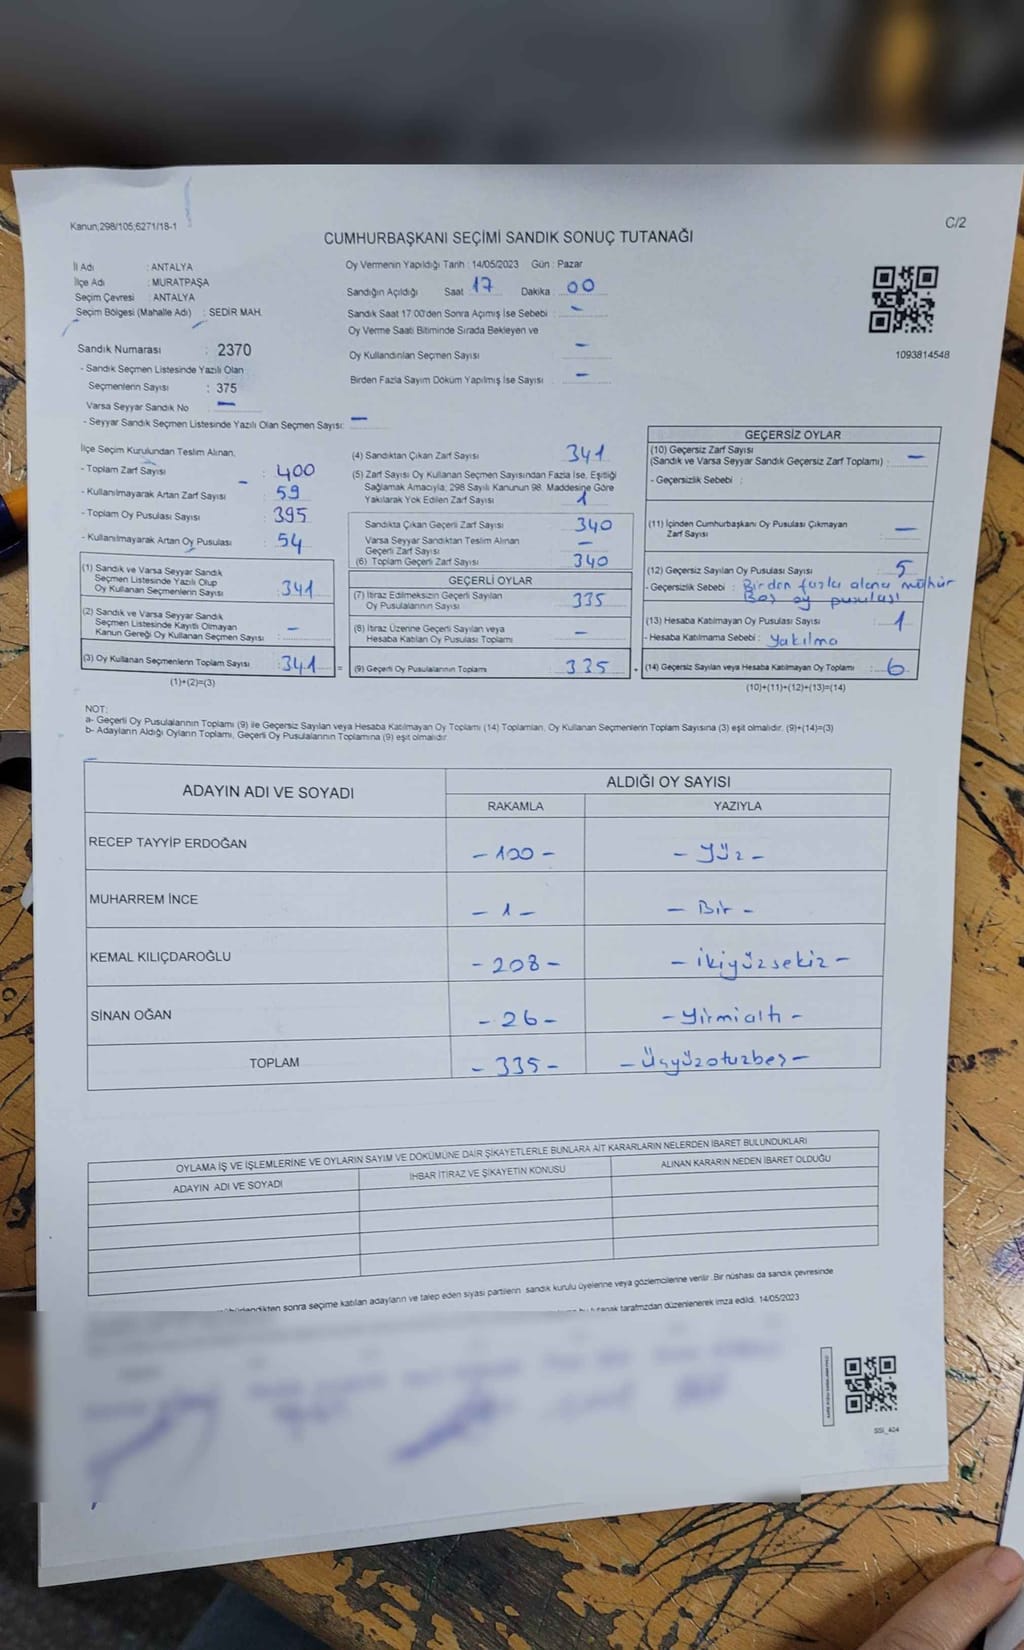 Kanun;298/105;6271/18-1
C/2
CUMHURBAŞKANI SEÇİMİ SANDIK SONUÇ TUTANAĞI
İl Adı : ANTALYA
İlçe Adı : MURATPAŞA
Seçim Çevresi : ANTALYA
Seçim Bölgesi (Mahalle Adı) : SEDİR MAH.
Sandık Numarası : 2370
- Sandık Seçmen Listesinde Yazılı Olan
Seçmenlerin Sayısı : 375
Varsa Seyyar Sandık No —
- Seyyar Sandık Seçmen Listesinde Yazılı Olan Seçmen Sayısı: —
Oy Vermenin Yapıldığı Tarih : 14/05/2023 Gün : Pazar
Sandığın Açıldığı Saat 17 Dakika 00
Sandık Saat 17:00'den Sonra Açımış İse Sebebi : —
Oy Verme Saati Bitiminde Sırada Bekleyen ve
Oy Kullandırılan Seçmen Sayısı —
Birden Fazla Sayım Döküm Yapılmış İse Sayısı : —
1093814548
İlçe Seçim Kurulundan Teslim Alınan;
- Toplam Zarf Sayısı : 400
- Kullanılmayarak Artan Zarf Sayısı : 59
- Toplam Oy Pusulası Sayısı : 395
- Kullanılmayarak Artan Oy Pusulası : 54
(1) Sandık ve Varsa Seyyar Sandık
Seçmen Listesinde Yazılı Olup
Oy Kullanan Seçmenlerin Sayısı : 341
(2) Sandık ve Varsa Seyyar Sandık
Seçmen Listesinde Kayıtlı Olmayan
Kanun Gereği Oy Kullanan Seçmen Sayısı : —
(3) Oy Kullanan Seçmenlerin Toplam Sayısı : 341 =
(1)+(2)=(3)
(4) Sandıktan Çıkan Zarf Sayısı 341
(5) Zarf Sayısı Oy Kullanan Seçmen Sayısından Fazla İse, Eşitliği
Sağlamak Amacıyla, 298 Sayılı Kanunun 98. Maddesine Göre
Yakılarak Yok Edilen Zarf Sayısı 1
Sandıkta Çıkan Geçerli Zarf Sayısı 340
Varsa Seyyar Sandıktan Teslim Alınan
Geçerli Zarf Sayısı —
(6) Toplam Geçerli Zarf Sayısı 340
GEÇERLİ OYLAR
(7) İtiraz Edilmeksizin Geçerli Sayılan
Oy Pusulalarının Sayısı : 335
(8) İtiraz Üzerine Geçerli Sayılan veya
Hesaba Katılan Oy Pusulası Toplamı : —
(9) Geçerli Oy Pusulalarının Toplamı : 335 +
GEÇERSİZ OYLAR
(10) Geçersiz Zarf Sayısı
(Sandık ve Varsa Seyyar Sandık Geçersiz Zarf Toplamı) : —
- Geçersizlik Sebebi :
(11) İçinden Cumhurbaşkanı Oy Pusulası Çıkmayan
Zarf Sayısı —
(12) Geçersiz Sayılan Oy Pusulası Sayısı 5
- Geçersizlik Sebebi : Birden fazla alana mühür
Boş oy pusulası
(13) Hesaba Katılmayan Oy Pusulası Sayısı 1
- Hesaba Katılmama Sebebi : Yakılma
(14) Geçersiz Sayılan veya Hesaba Katılmayan Oy Toplamı : 6
(10)+(11)+(12)+(13)=(14)
NOT:
a- Geçerli Oy Pusulalarının Toplamı (9) ile Geçersiz Sayılan veya Hesaba Katılmayan Oy Toplamı (14) Toplamları, Oy Kullanan Seçmenlerin Toplam Sayısına (3) eşit olmalıdır. (9)+(14)=(3)
b- Adayların Aldığı Oyların Toplamı, Geçerli Oy Pusulalarının Toplamına (9) eşit olmalıdır
ADAYIN ADI VE SOYADI
ALDIĞI OY SAYISI
RAKAMLA YAZIYLA
RECEP TAYYİP ERDOĞAN - 100 - - Yüz -
MUHARREM İNCE - 1 - - Bir -
KEMAL KILIÇDAROĞLU - 208 - - İkiyüzsekiz -
SİNAN OĞAN - 26 - - Yirmialtı -
TOPLAM - 335 - - Üçyüzotuzbeş -
OYLAMA İŞ VE İŞLEMLERİNE VE OYLARIN SAYIM VE DÖKÜMÜNE DAİR ŞİKAYETLERLE BUNLARA AİT KARARLARIN NELERDEN İBARET BULUNDUKLARI
ADAYIN ADI VE SOYADI İHBAR İTİRAZ VE ŞİKAYETİN KONUSU ALINAN KARARIN NEDEN İBARET OLDUĞU
sonra seçime katılan adayların ve talep eden siyasi partilerin sandık kurulu üyelerine veya gözlemcilerine verilir. Bir nüshası da sandık çevresinde
tutanak tarafımızdan düzenlenerek imza edildi. 14/05/2023
SSI_404